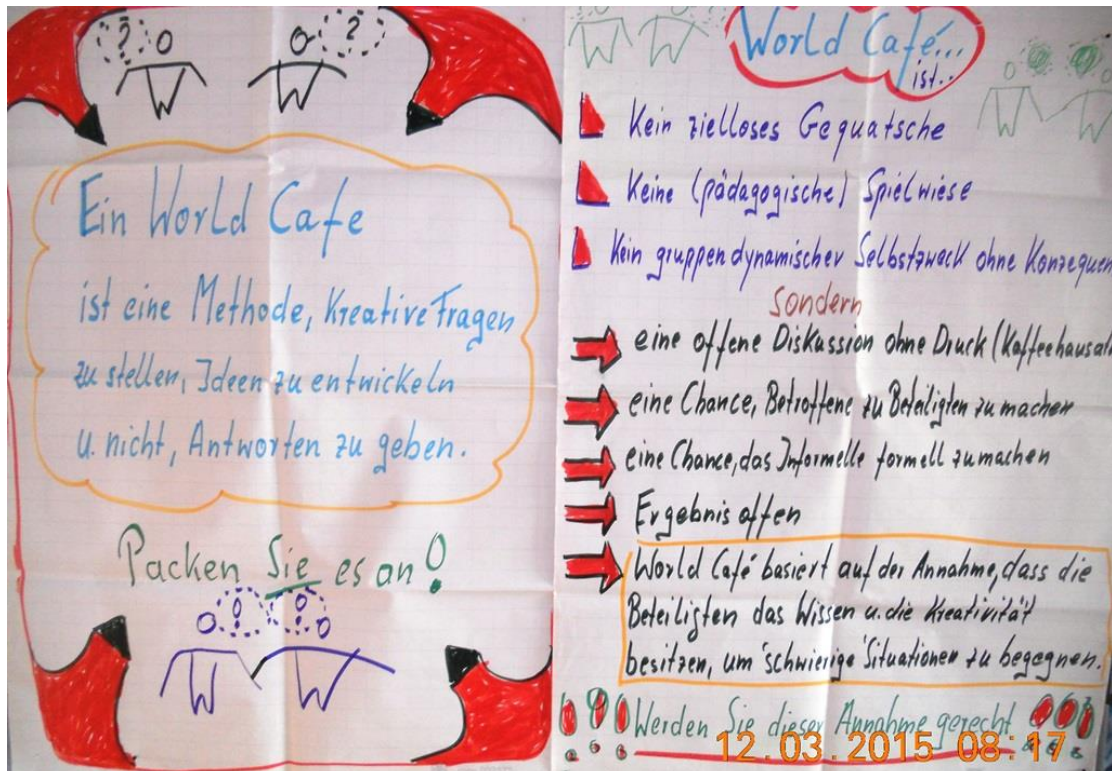 ?
?
Ein World Cafe
ist eine Methode, Kreative Fragen
zu stellen, Ideen zu entwickeln
u. nicht, Antworten zu geben.
Packen Sie es an!
! !
World Café...
ist..
Kein zielloses Gequatsche
Keine (pädagogische) Spielwiese
Kein gruppendynamischer Selbstzweck ohne Konzequen
sondern
eine offene Diskussion ohne Druck (Kaffeehaus
eine Chance, Betroffene zu Beteiligten zu machen
eine Chance, das Informelle formell zu machen
Ergebnis offen
World Café basiert auf der Annahme, dass die
Beteiligten das Wissen u. die Kreativität
besitzen, um schwierige Situationen zu begegnen.
!!! Werden Sie dieser Annahme gerecht !!!
12.03.2015 08:17